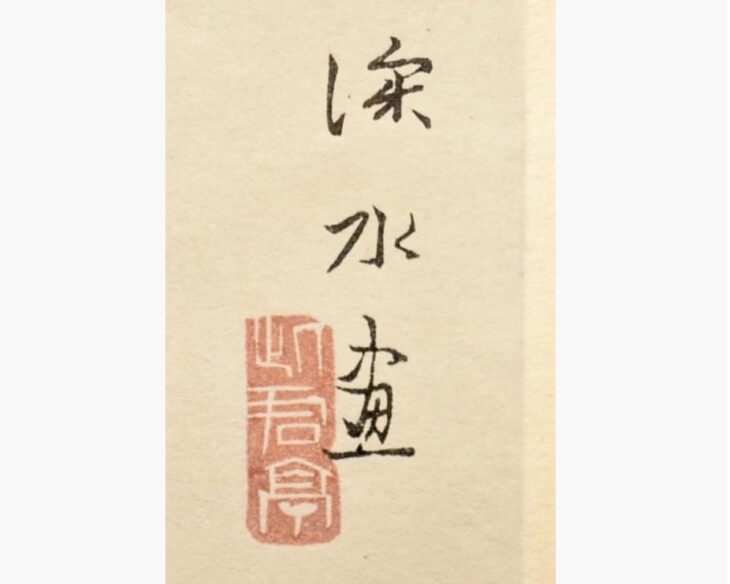 深水畫
此君亭